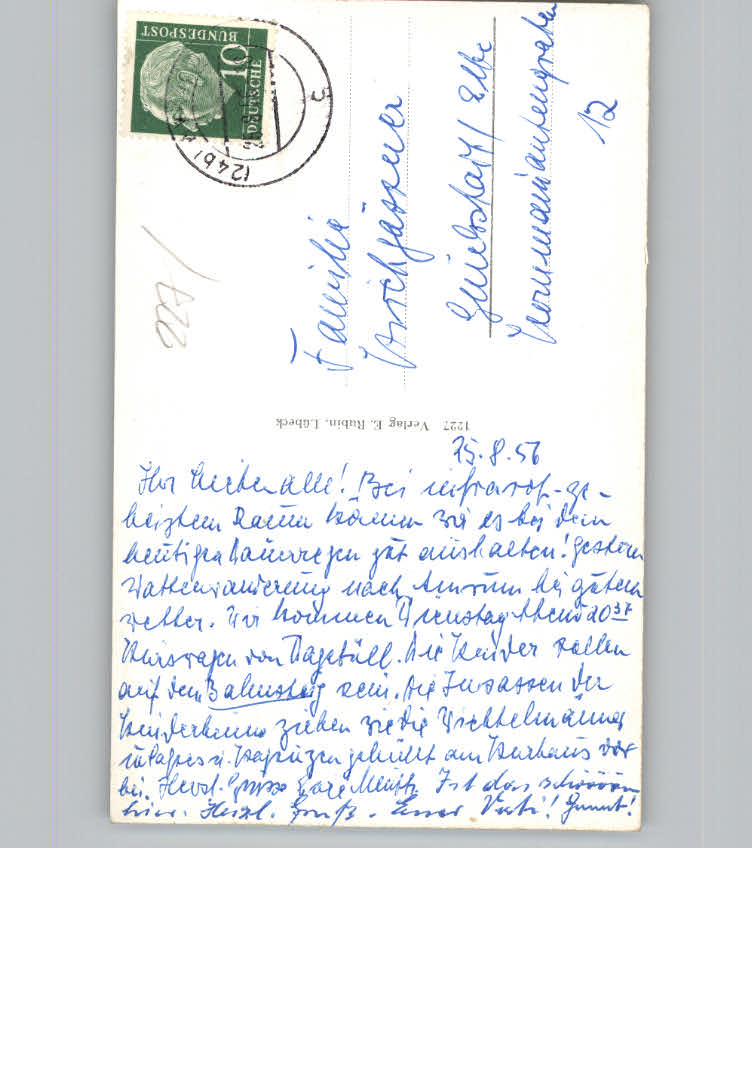 DEUTSCHE
BUNDESPOST
10
(24b)
Familie
Glückstadt/Elbe
12
1227 Verlag E. Rubin, Lübeck
25.8.56
Ihr Lieben alle! Bei infrarot-ge-
heiztem Raum können wir es bei dem
heutigen Dauerregen gut aushalten! Gestern
Wattenwanderung nach Amrum bei gutem
Wetter. Wir kommen Dienstag Abend 20
Kurswagen von Dagebüll. Die Kinder sollen
auf dem Bahnsteig sein. Die Insassen der
Kinderheime ziehen wie die Wichtelmänner
in Capes u. Kapuzen gehüllt am Kurhaus vor
bei. Herzl. Grüsse Eure Ist das schööön
hier. Herzl. Gruß. Euer Vati!